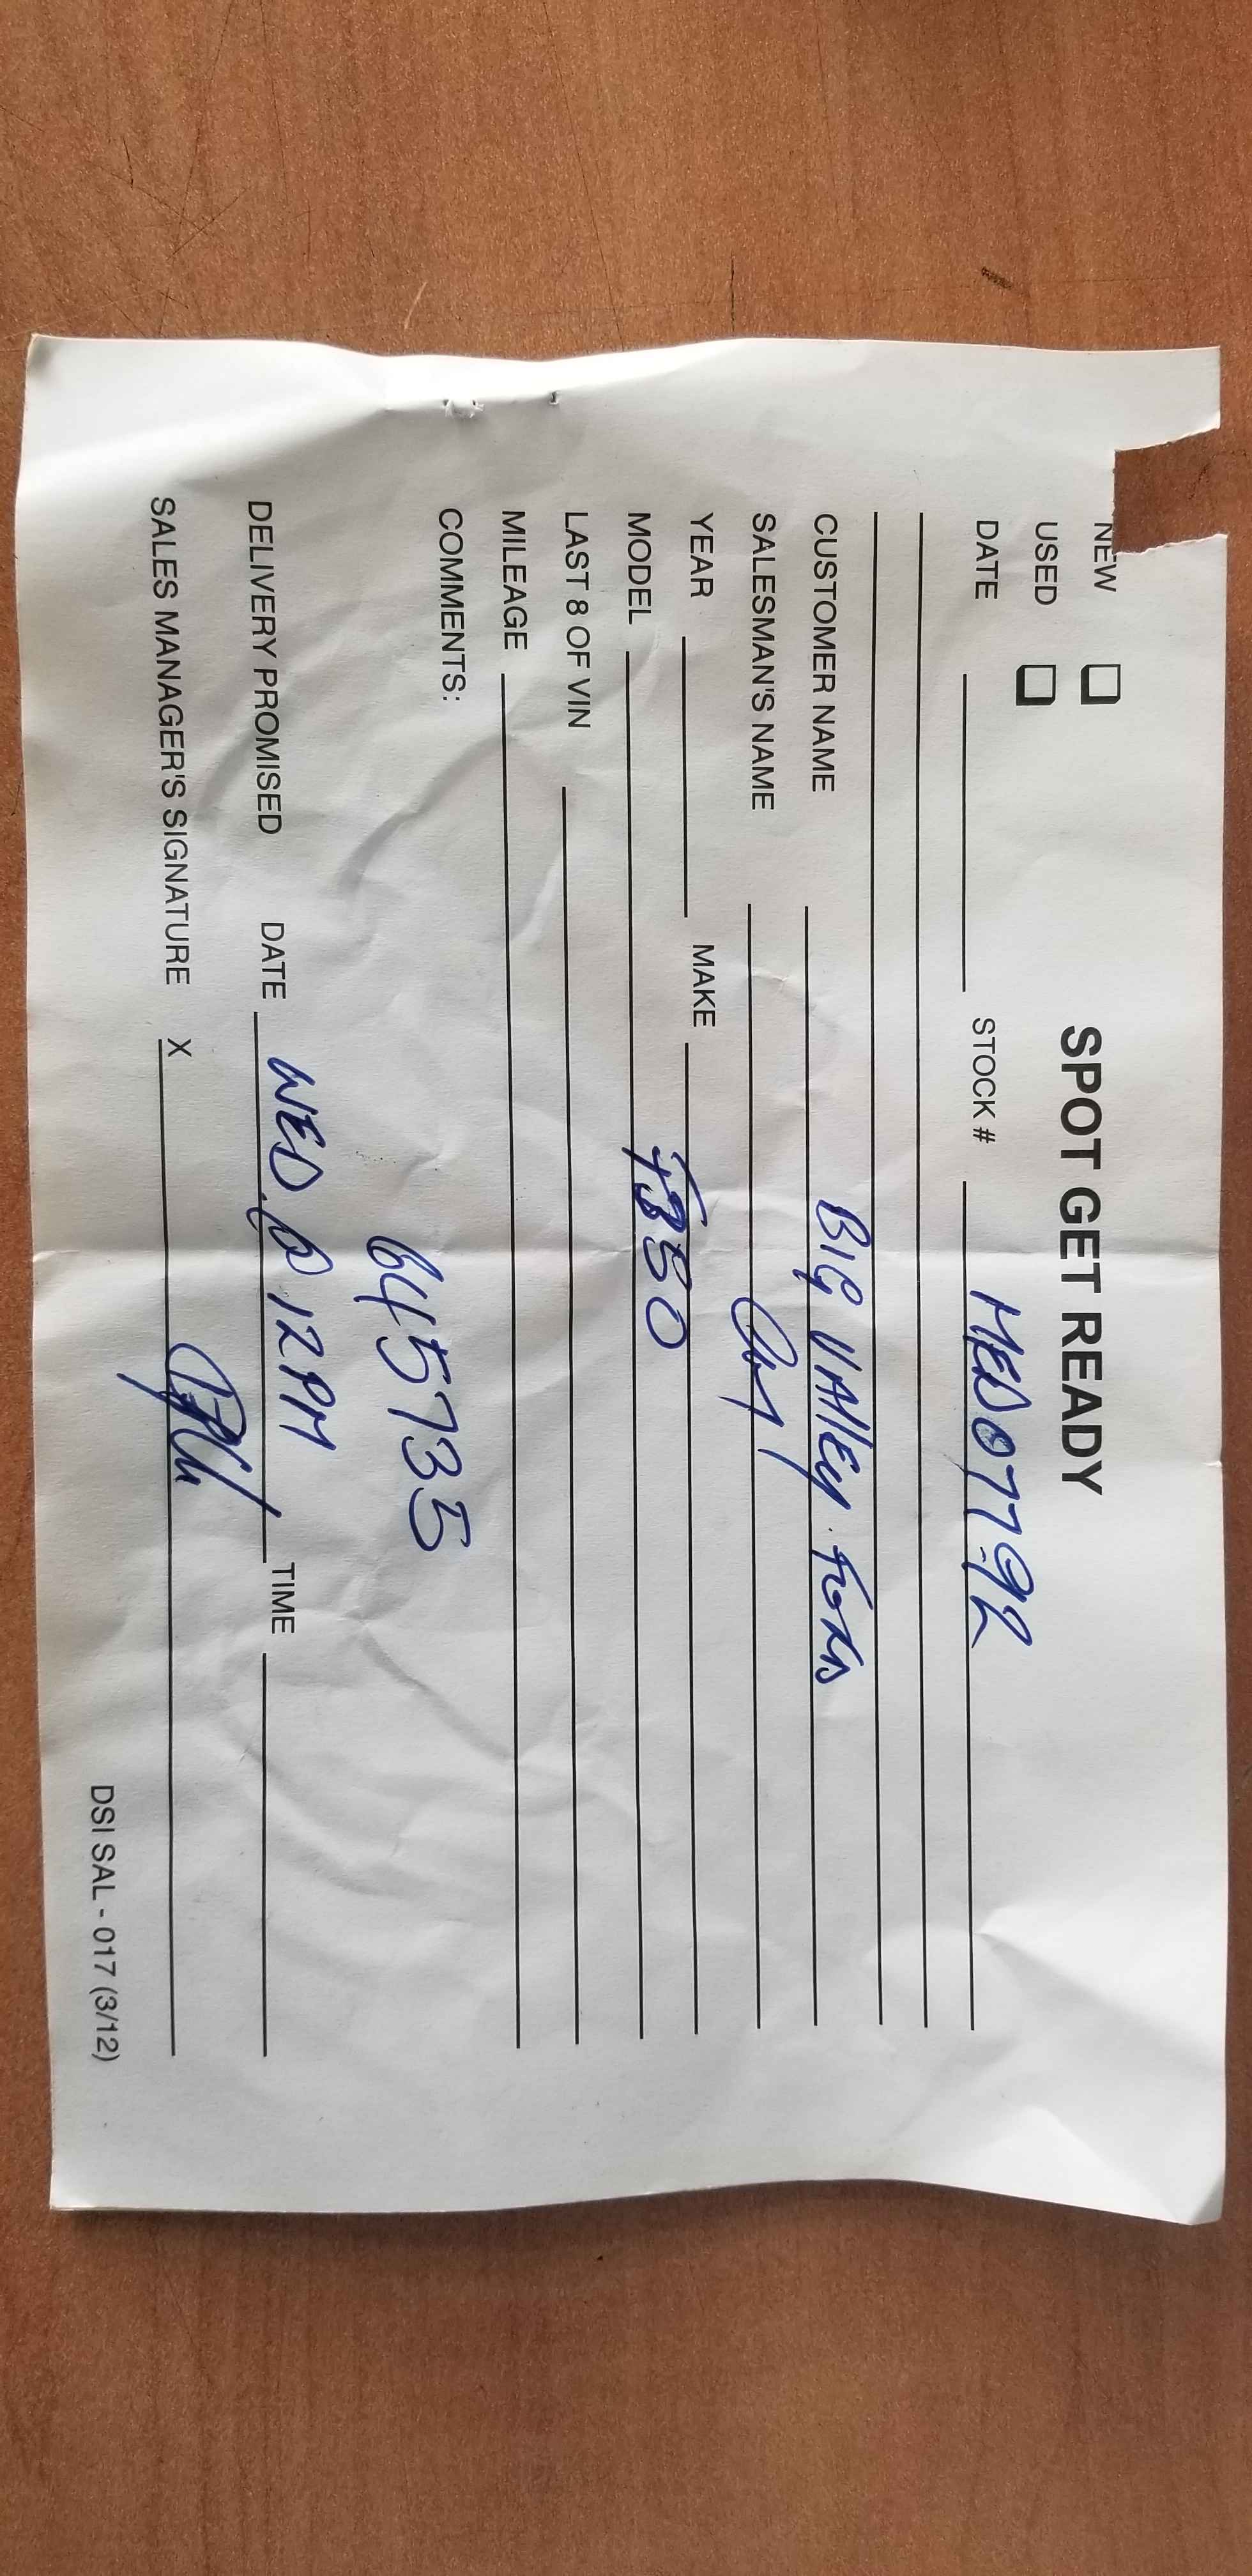 SPOT GET READY
NEW
USED
DATE STOCK # MED07792
CUSTOMER NAME BIG VALLEY FORD
SALESMAN'S NAME
YEAR MAKE
MODEL F350
LAST 8 OF VIN
MILEAGE
COMMENTS:
645735
DELIVERY PROMISED DATE WED @ 12 PM TIME
SALES MANAGER'S SIGNATURE X
DSI SAL - 017 (3/12)